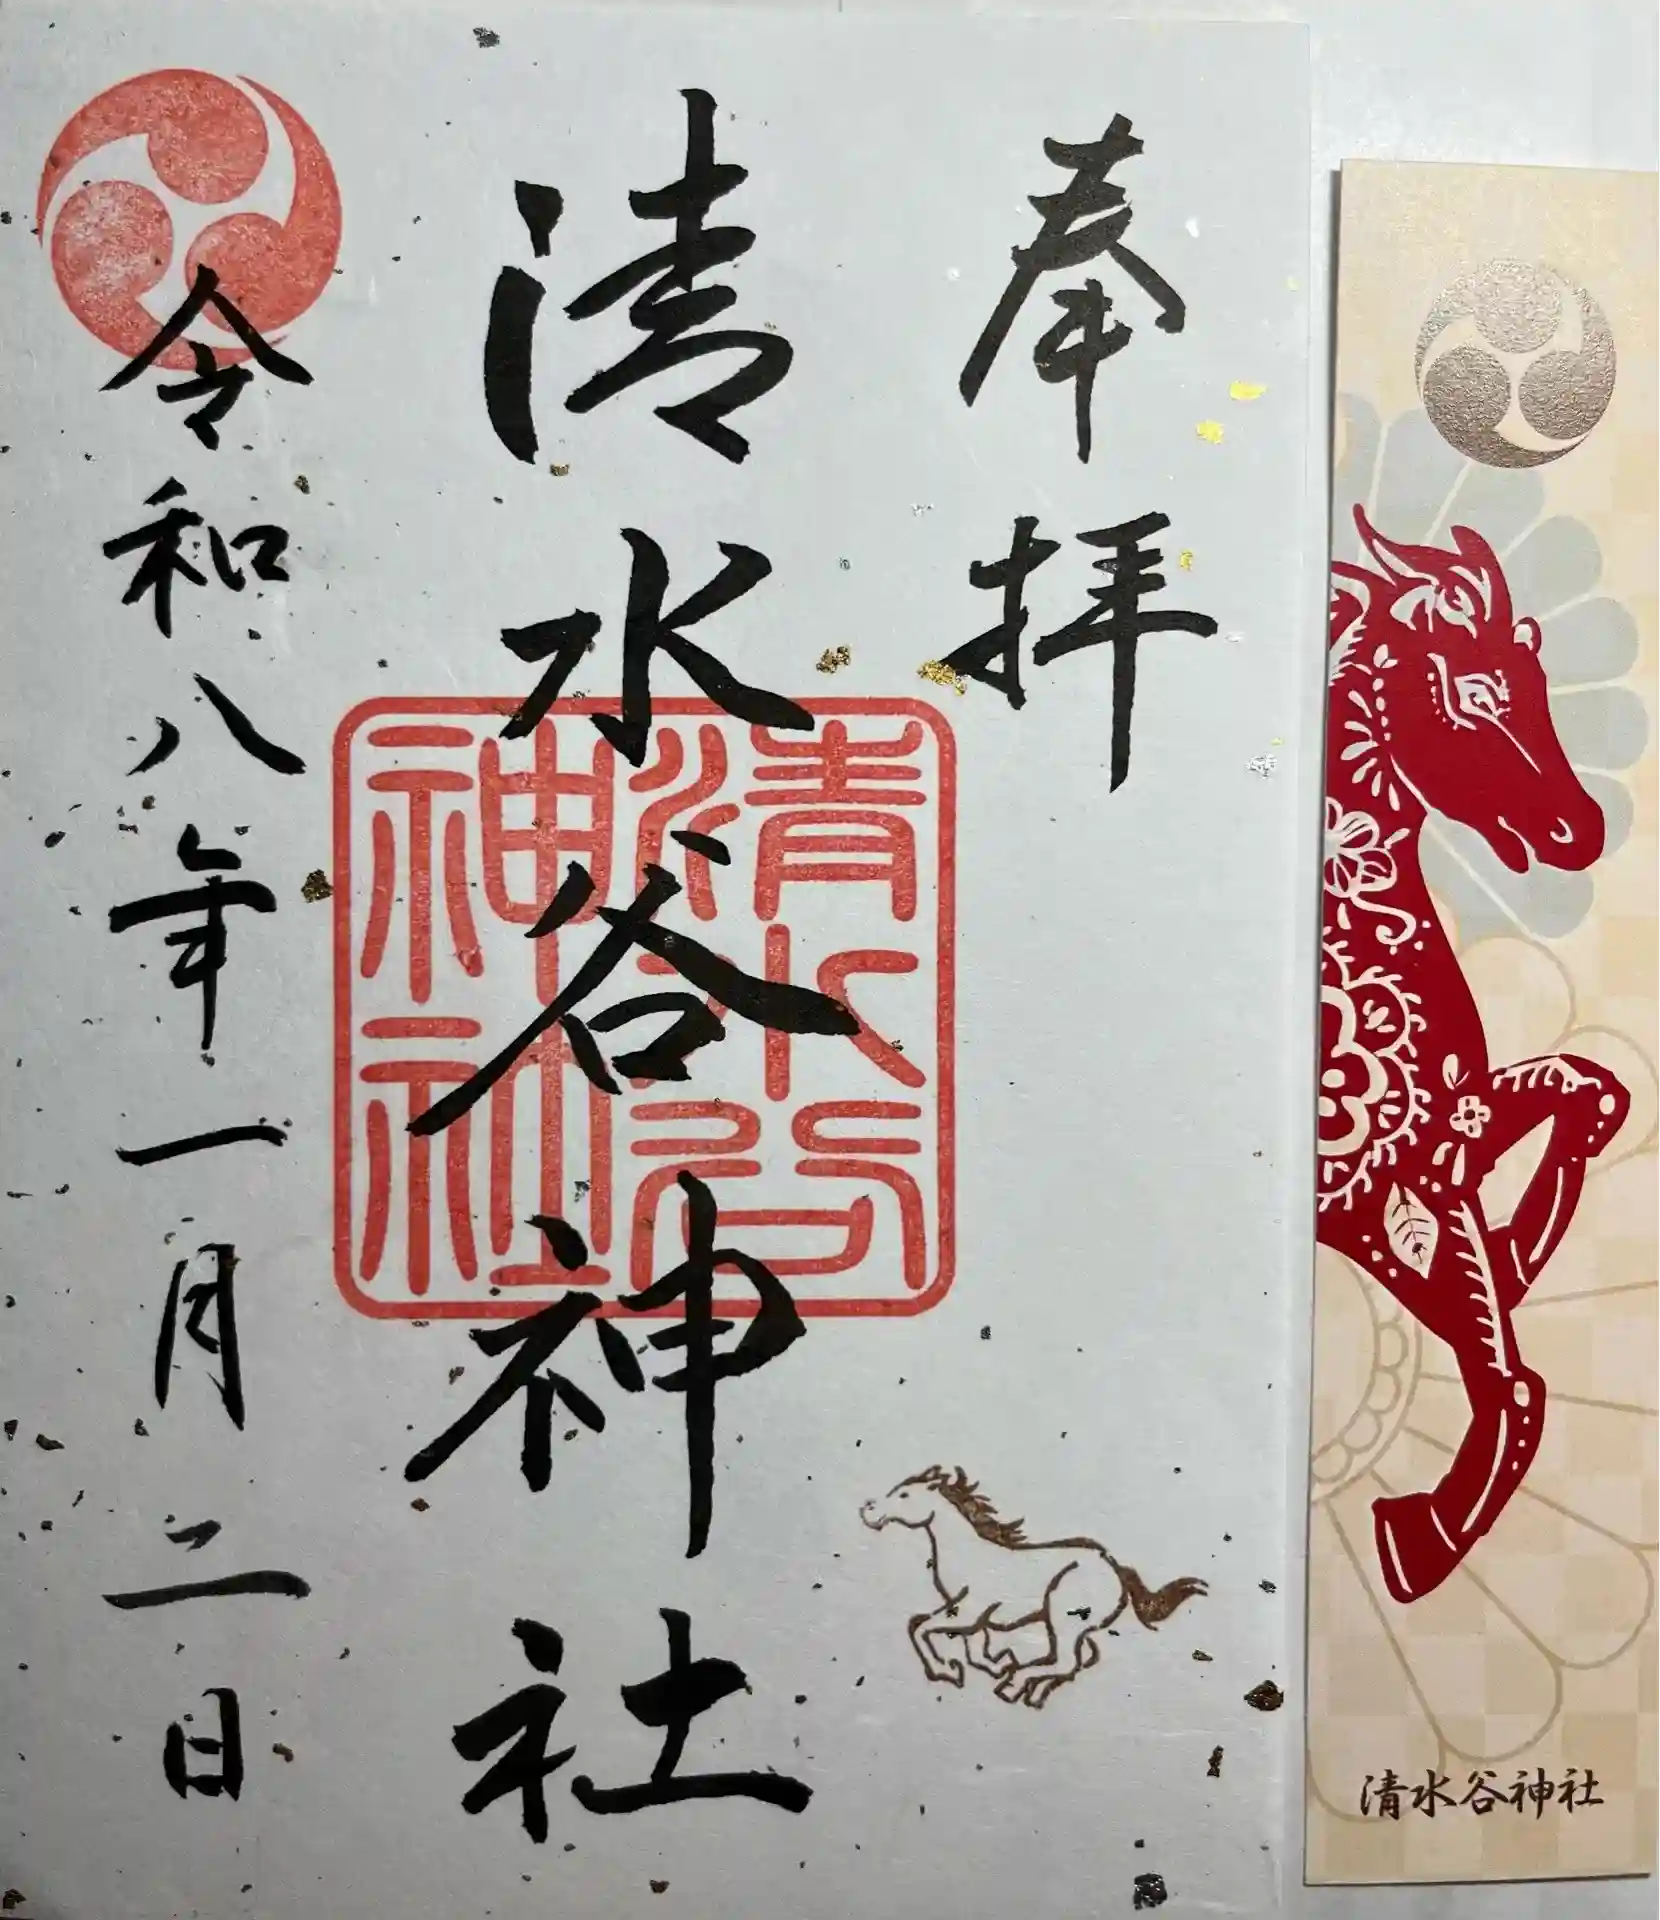 奉拝
清水谷神社
清水谷
神社
令和八年一月二日
清水谷神社